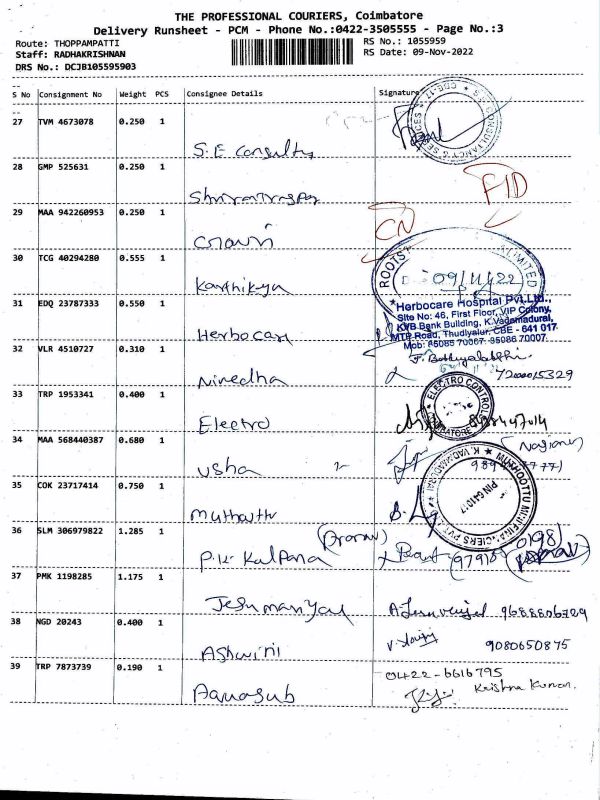 THE PROFESSIONAL COURIERS, Coimbatore
Delivery Runsheet - PCM - Phone No.:0422-3505555 - Page No.:3
Route: THOPPAMPATTI RS No.: 1055959
Staff: RADHAKRISHNAN RS Date: 09-Nov-2022
DRS No.: DCJB105595903
S No Consignment No Weight PCS Consignee Details Signature
27 TVM 4673078 0.250 1
S.E Consulty
28 GMP 525631 0.250 1
FID
29 MAA 942260953 0.250 1
CN
30 TCG 40294280 0.555 1
Karthikeya
ROOTS LIMITED
09/11/22
31 EDQ 23787333 0.550 1
Herbocare
Herbocare Hospital Pvt.Ltd.,
Site No: 46, First Floor, VIP Colony,
KVB Bank Building, K.Vadamadurai,
MTP Road, Thudiyalur, CBE - 641 017
Mob: 85085 70067, 95086 70007.
32 VLR 4510727 0.310 1
Nivedha
7200015329
33 TRP 1953341 0.400 1
Electro
ELECTRO CONTROL
34 MAA 568440387 0.680 1
Usha
35 COK 23717414 0.750 1
Muthoottu
MUTHOOTTU MINI FINANCIERS PVT. LTD
K. VADAMADURAI
PIN 641017
B.
36 SLM 306979822 1.285 1
P.K. Kalpana
37 PMK 1198285 1.175 1
9688806729
38 NGD 20243 0.400 1
Ashwini
9080650875
39 TRP 7873739 0.190 1
Aarosub
0422-6616795
Krishna Kumar.